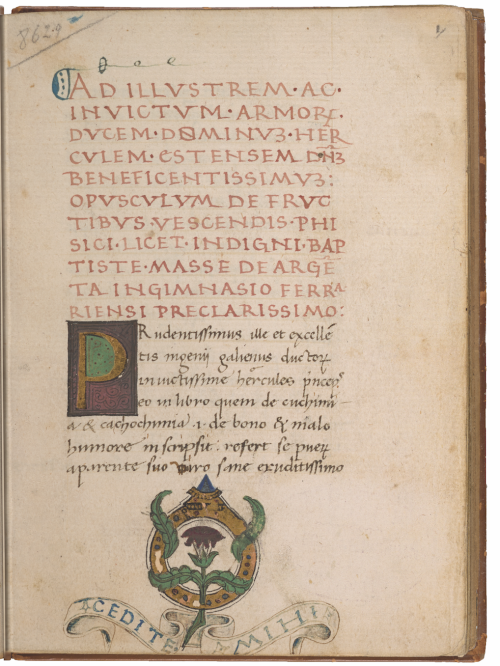 8629
AD ILLVSTREM · AC ·
INVICTVM · ARMOR
DVCEM · DOMINVꝫ · HER
CVLEM · ESTENSEM DNꝫ
BENEFICENTISSIMVꝫ :
OPVSCVLVM DE FRVC
TIBVS · VESCENDIS · PHI
SICI · LICET · INDIGNI · BAP
TISTE · MASSE DE ARGĒ
TA IN GIMNASIO FERR̄A
RIENSI PRECLARISSIMO :
PRudentissimus ille et excellē
tis ingenij galienus ductoꝝ
invictissime hercules
eo in libro quem de
& cachochimia .i. de bono & malo
humore inscripsit . refert se pueꝝ
aparente suo viro sane eruditissimo
CEDITE MIHI